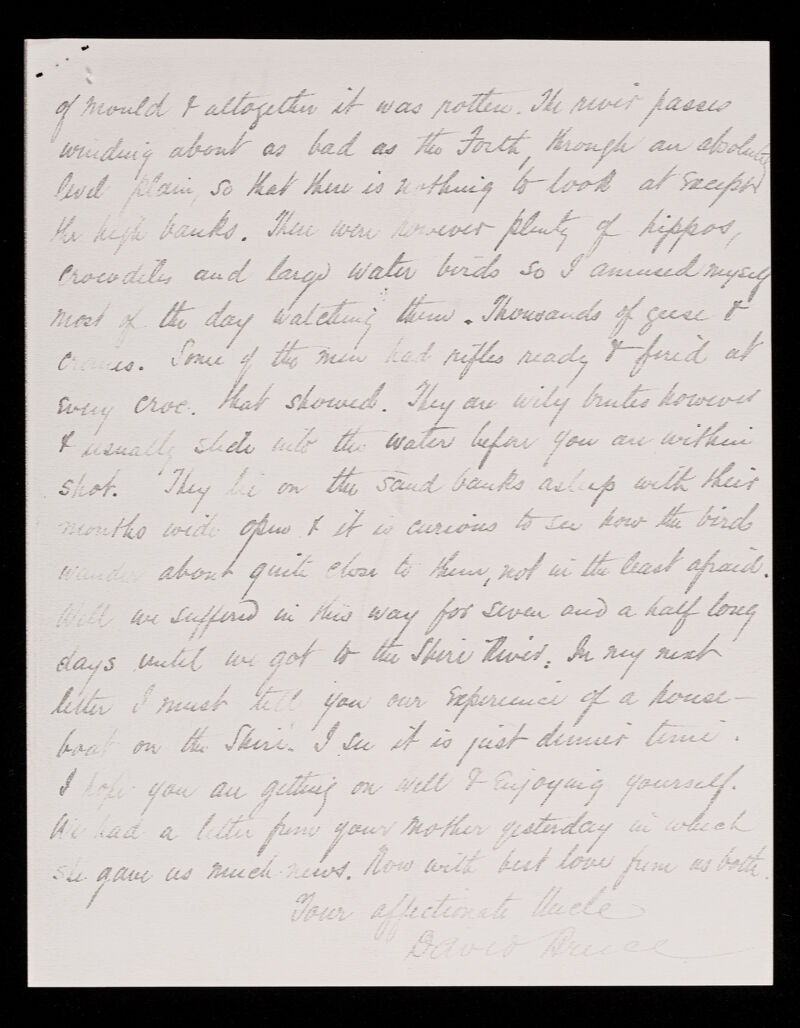 of mould & altogether it was rotten. The river passes
winding about as bad as the Forth, through an absolutely
level plain, so that there is nothing to look at Except
the high banks. There were however plenty of hippos,
crocodiles and large water birds so I amused myself
most of the day watching them. Thousands of geese &
cranes. Some of the men had rifles ready & fired at
Every croc. that showed. They are wily brutes however
& usually slide into the water before you are within
shot. They lie on the sand banks asleep with their
mouths wide open & it is curious to see how the birds
wander about quite close to them, not in the least afraid.
Well we suffered in this way for seven and a half long
days until we got to the Shire River. In my next
letter I must tell you our Experience of a house-
boat on the Shire. I see it is just dinner time.
I hope you are getting on well & Enjoying yourself.
We had a letter from your Mother yesterday in which
she gave us much news. Now with best love from us both.
Your affectionate Uncle
David Bruce